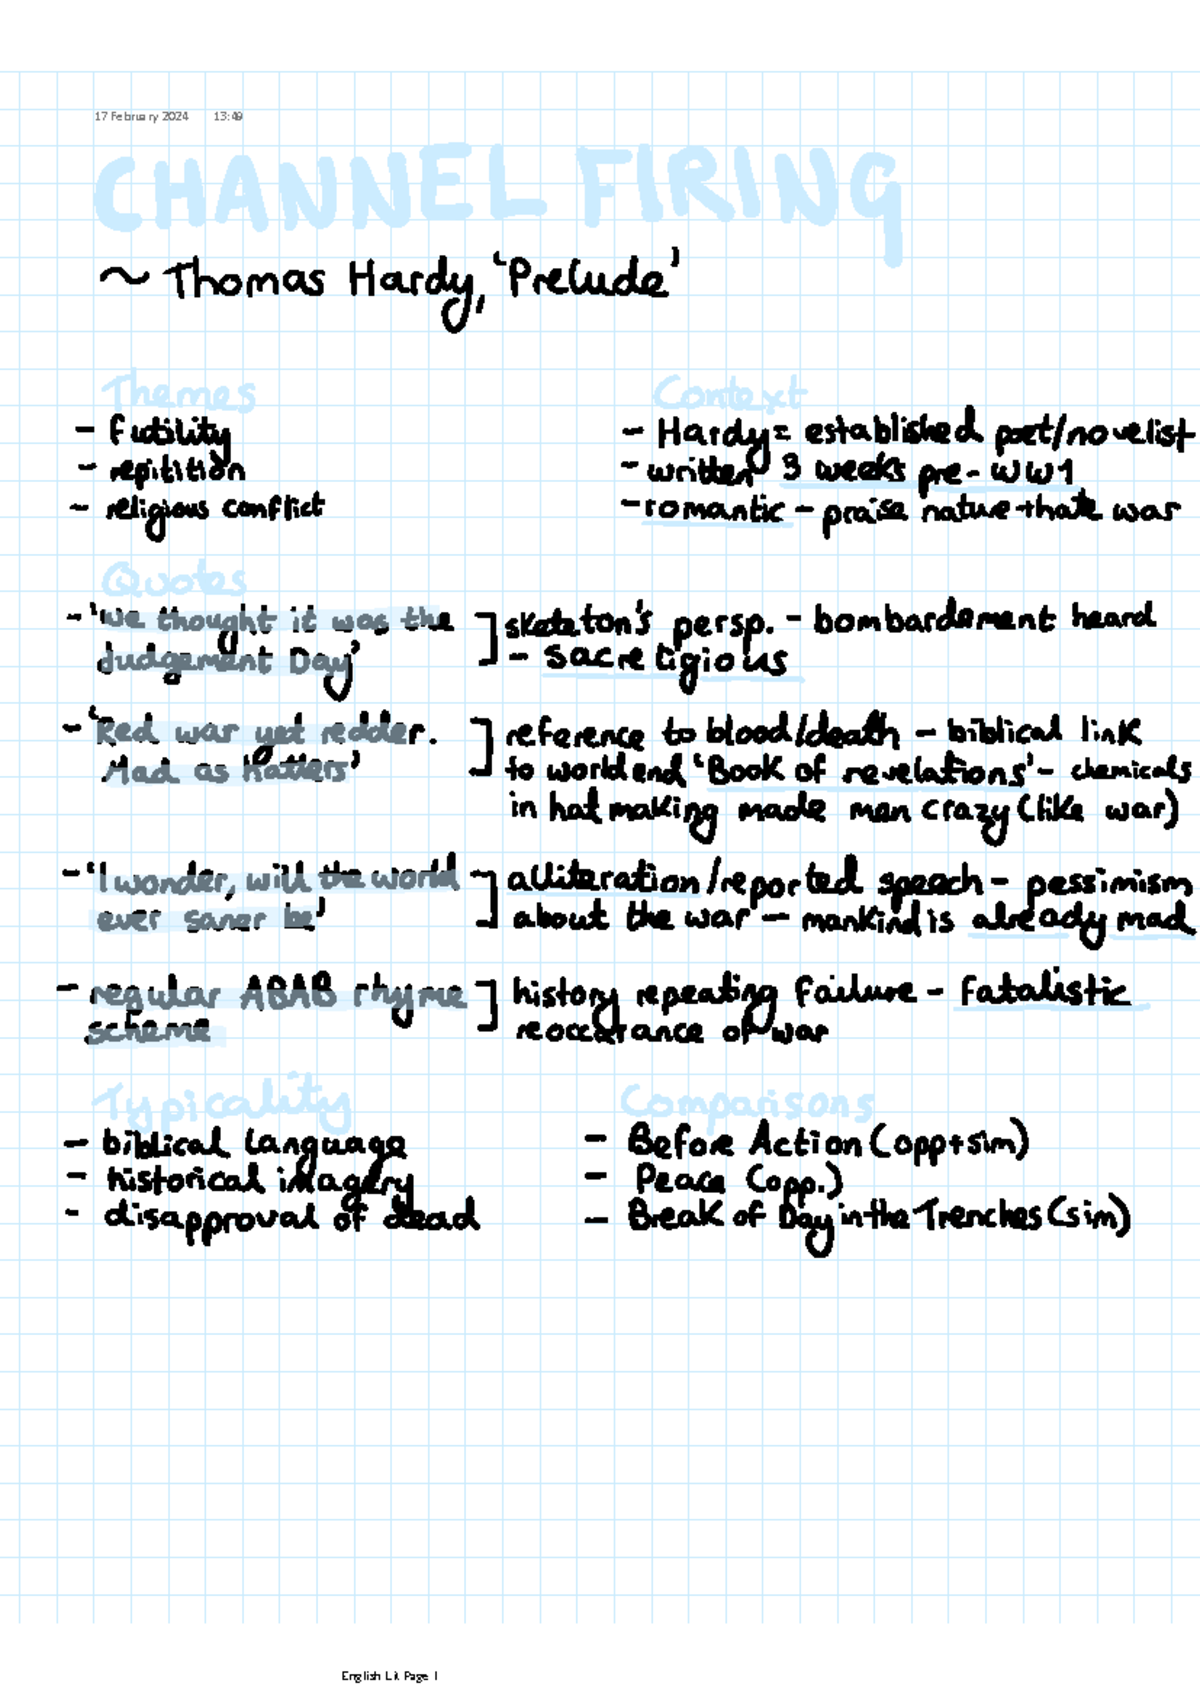 17 February 2024 13:49
CHANNEL FIRING
~ Thomas Hardy, 'Prelude'
Themes
- futility
- repitition
- religious conflict
Context
- Hardy = established poet/novelist
- written 3 weeks pre-WW1
- romantic - praise nature + hate war
Quotes
- 'we thought it was the
Judgement Day'
] skeleton's persp. - bombardement heard
- sacreligious
- 'Red war yet redder.
Mad as hatters'
] reference to blood/death - biblical link
to world end 'Book of revelations' - chemicals
in hat making made men crazy (like war)
- 'I wonder, will the world
ever saner be'
] alliteration/reported speech - pessimism
about the war - mankind is already mad
- regular ABAB rhyme
scheme
] history repeating failure - fatalistic
reoccurance of war
Typicality
- biblical language
- historical imagery
- disapproval of dead
Comparisons
- Before Action (opp+sim)
- Peace (opp.)
- Break of Day in the Trenches (sim)
English Lit Page 1